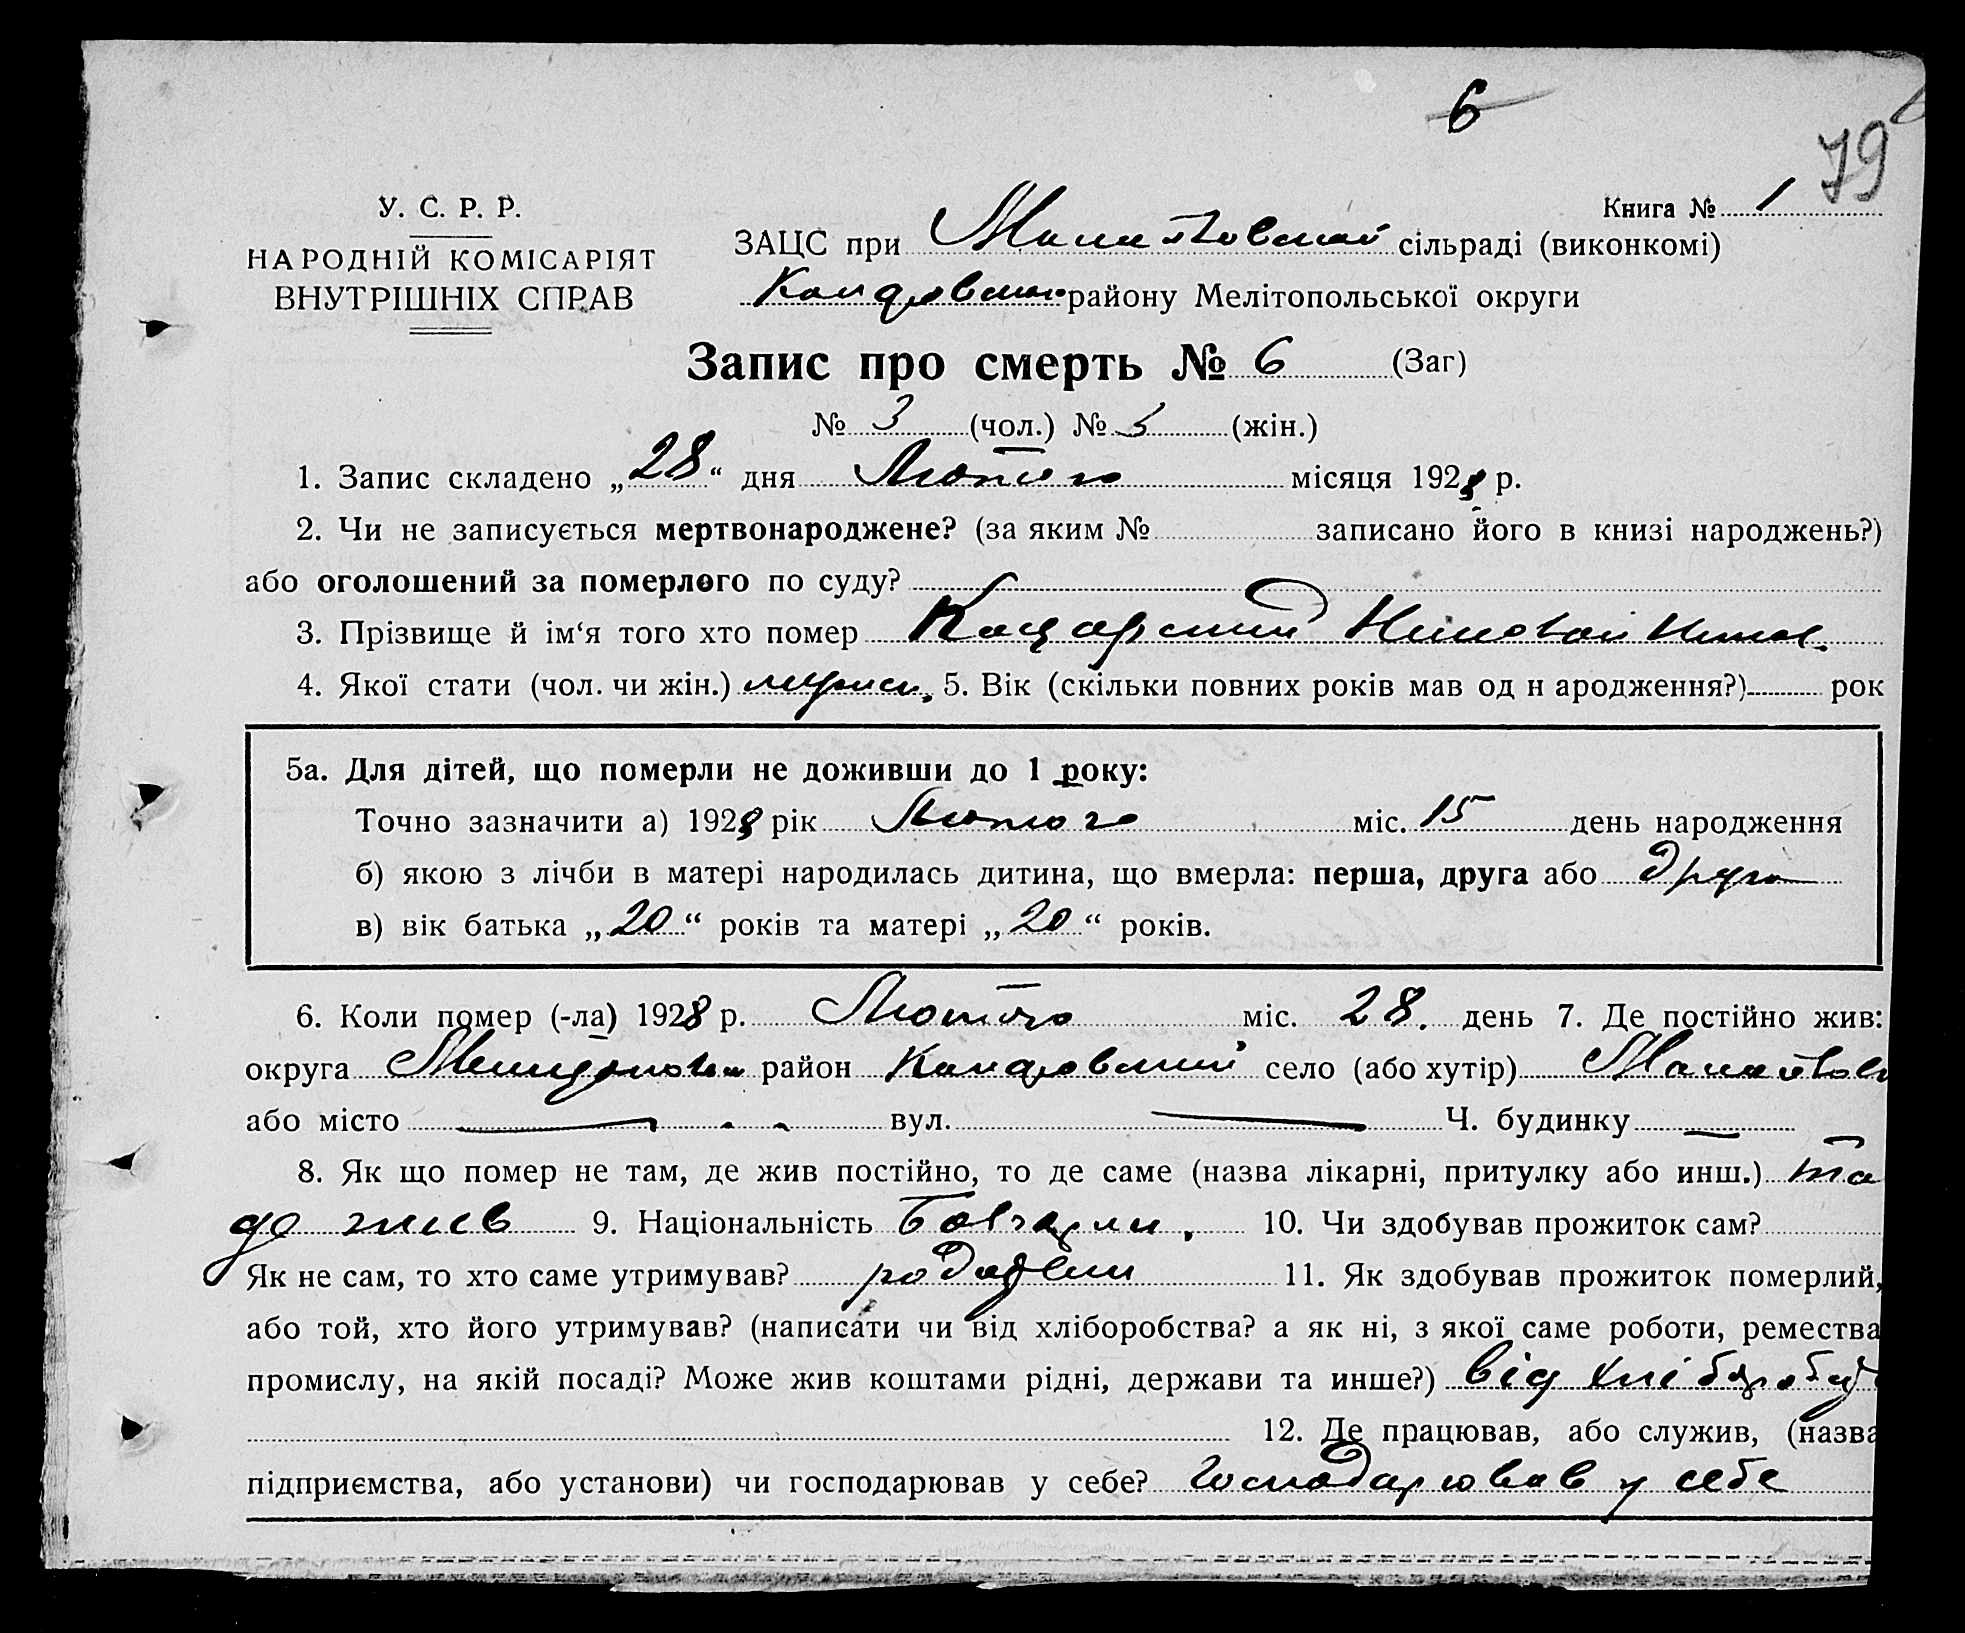 6
79
У. С. Р. Р.
НАРОДНІЙ КОМІСАРІЯТ
ВНУТРІШНІХ СПРАВ
Книга № 1
ЗАЦС при сільраді (виконкомі)
району Мелітопольської округи
Запис про смерть № 6 (Заг)
№ 3 (чол.) № (жін.)
1. Запис складено „28“ дня Лютого місяця 1928 р.
2. Чи не записується мертвонароджене? (за яким № записано його в книзі народжень?)
або оголошений за померлого по суду?
3. Прізвище й ім‘я того хто помер
4. Якої стати (чол. чи жін.) 5. Вік (скільки повних років мав од н ародження?) рок
5а. Для дітей, що померли не доживши до 1 року:
Точно зазначити а) 1928 рік Лютого міс. 15 день народження
б) якою з лічби в матері народилась дитина, що вмерла: перша, друга або друга
в) вік батька „20“ років та матері „20“ років.
6. Коли помер (-ла) 1928 р. Лютого міс. 28. день 7. Де постійно жив:
округа район село (або хутір)
або місто вул. Ч. будинку
8. Як що помер не там, де жив постійно, то де саме (назва лікарні, притулку або инш.) та
де жив 9. Національність 10. Чи здобував прожиток сам?
Як не сам, то хто саме утримував? 11. Як здобував прожиток померлий,
або той, хто його утримував? (написати чи від хліборобства? а як ні, з якої саме роботи, ремества
промислу, на якій посаді? Може жив коштами рідні, держави та инше?) від
12. Де працював, або служив, (назва
підприємства, або установи) чи господарював у себе? Господарював у себе